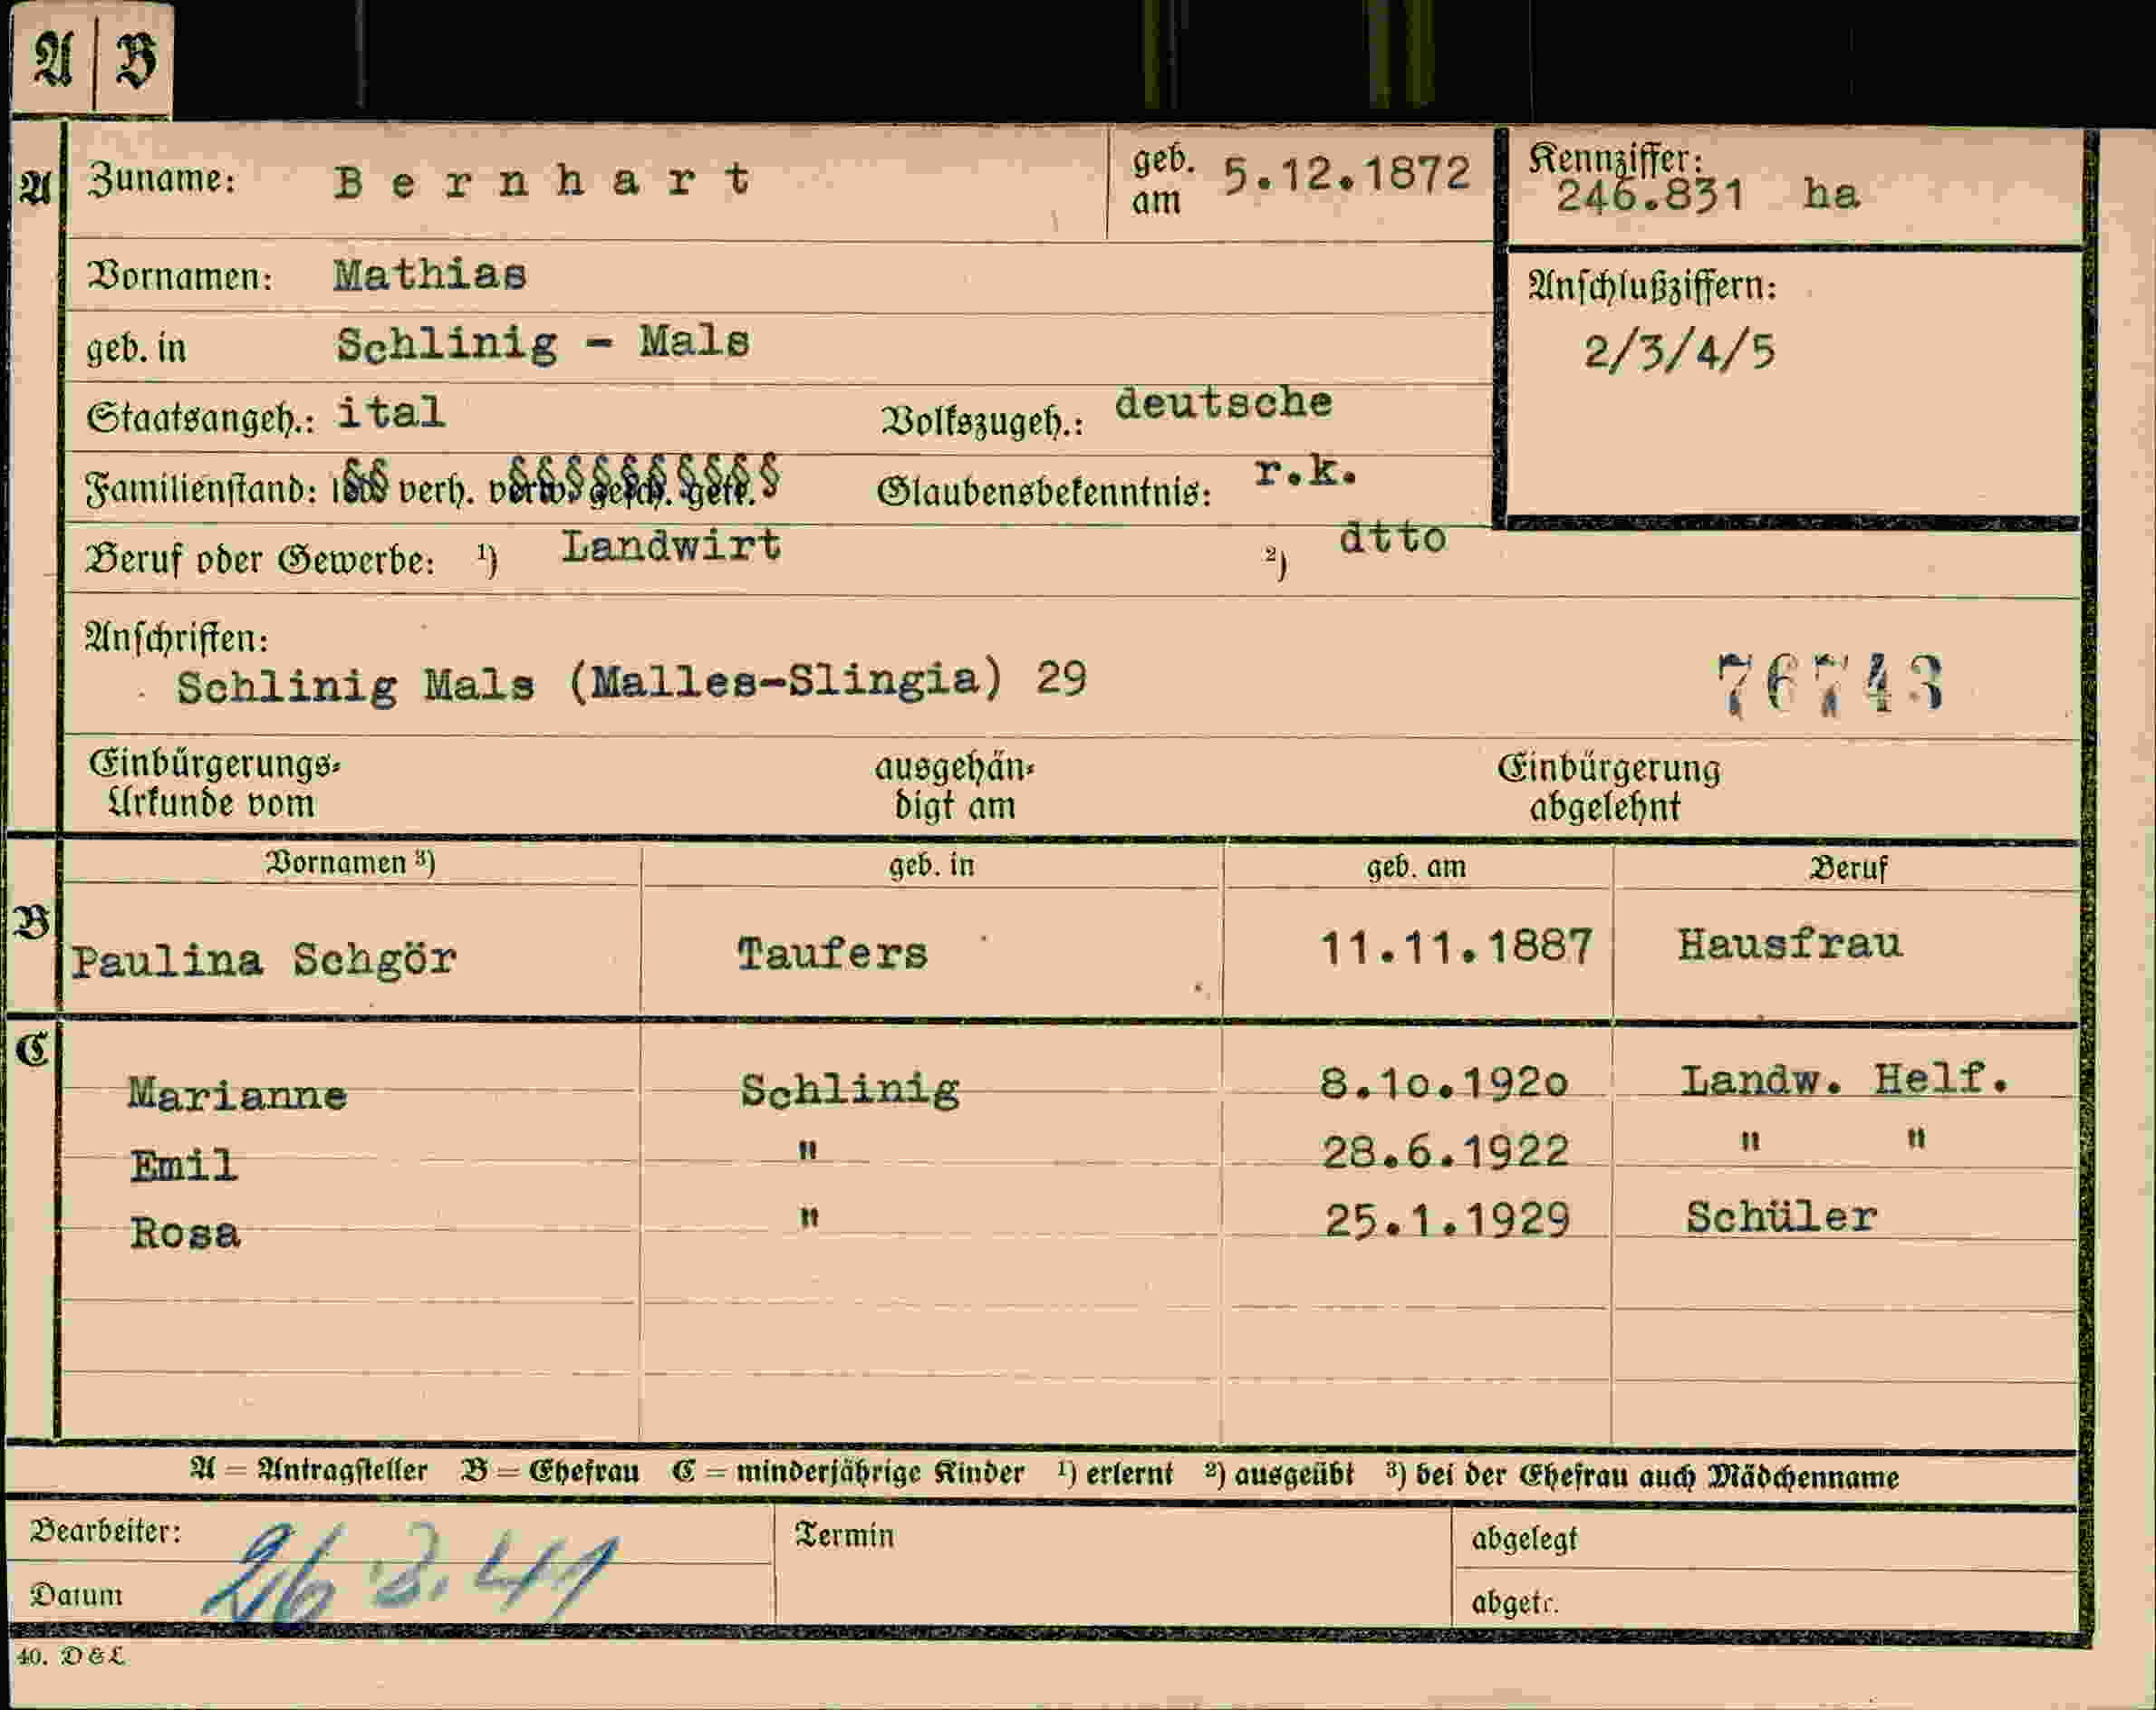 A | B
A Zuname: Bernhart geb. am 5.12.1872 Kennziffer: 246.831 ha
Vornamen: Mathias Anschlußziffern:
geb. in Schlinig - Mals 2/3/4/5
Staatsangeh.: ital Volkszugeh.: deutsche
Familienstand: verh. Glaubensbekenntnis: r.k.
Beruf oder Gewerbe: ¹) Landwirt ²) dtto
Anschriften:
Schlinig Mals (Malles-Slingia) 29 76743
Einbürgerungs- ausgehän- Einbürgerung
Urkunde vom digt am abgelehnt
Vornamen ³) geb. in geb. am Beruf
B Paulina Schgör Taufers 11.11.1887 Hausfrau
C
Marianne Schlinig 8.10.1920 Landw. Helf.
Emil " 28.6.1922 " "
Rosa " 25.1.1929 Schüler
A = Antragsteller B = Ehefrau C = minderjährige Kinder ¹) erlernt ²) ausgeübt ³) bei der Ehefrau auch Mädchenname
Bearbeiter: Termin abgelegt
Datum abgetr.
40. D & L